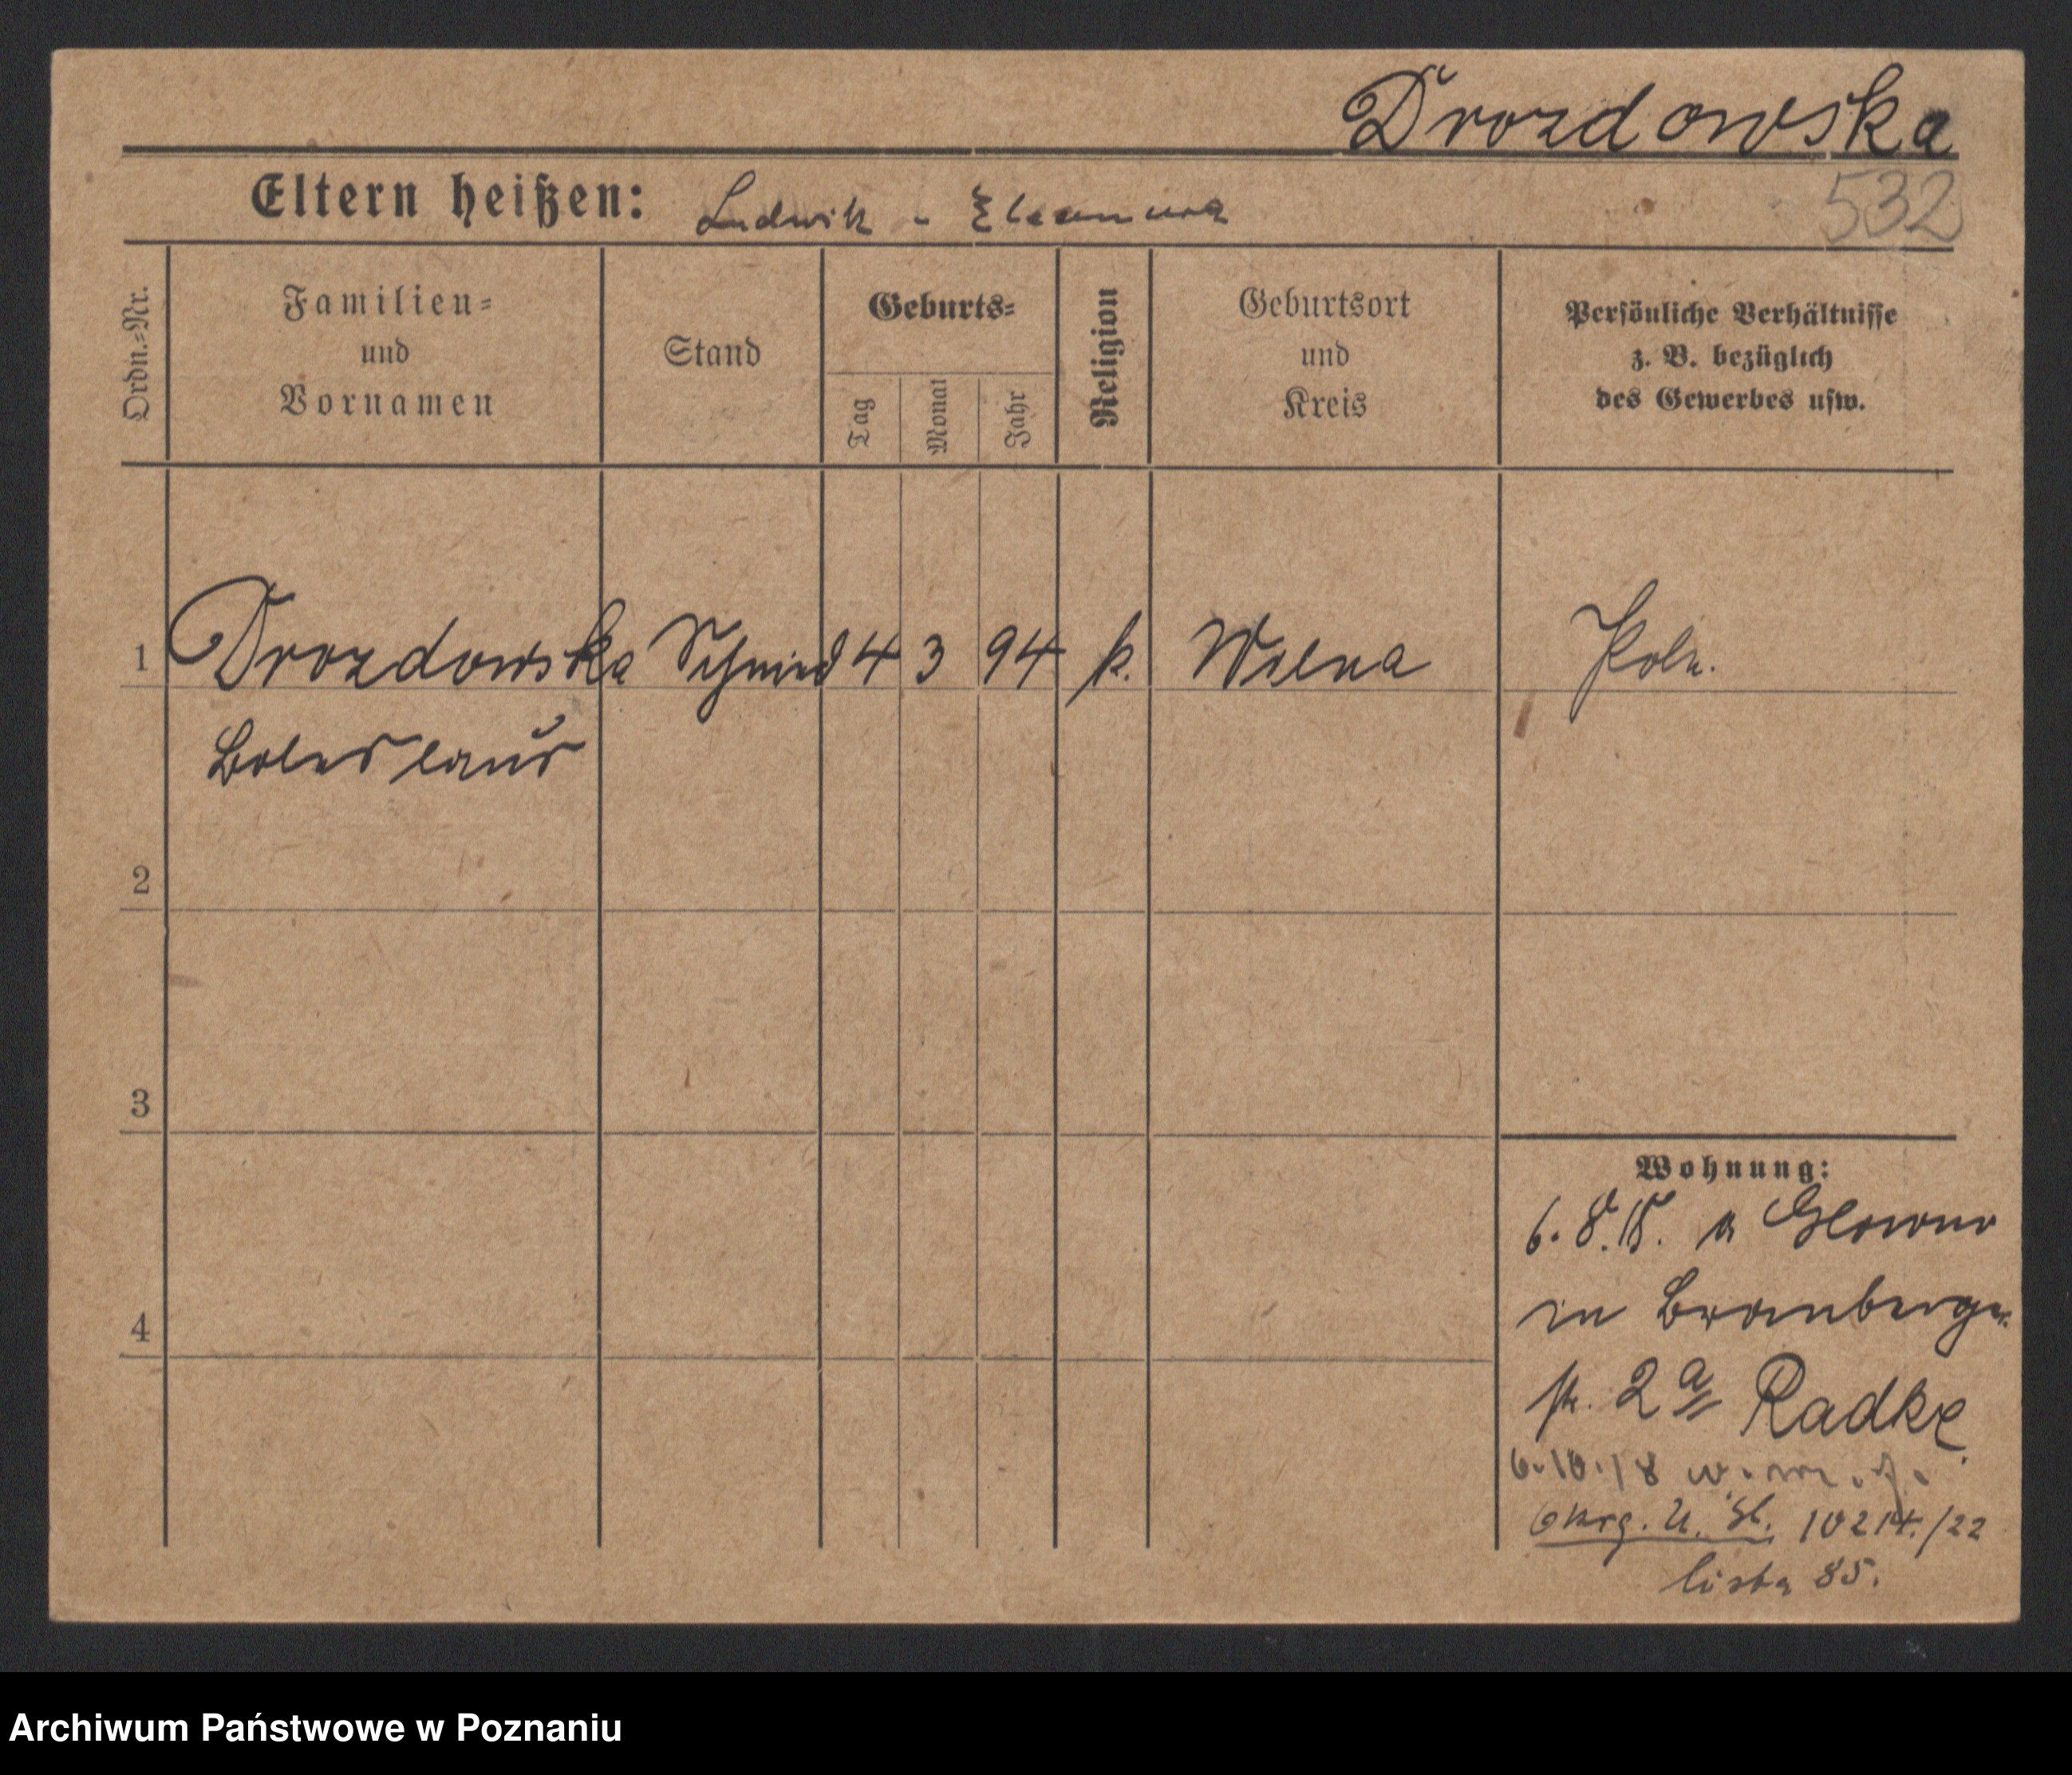 Drozdowska
Eltern heißen: Ludwik - Eleonora
532
Ordn.=Nr.
Familien=
und
Vornamen
Stand
Geburts=
Tag
Monat
Jahr
Religion
Geburtsort
und
Kreis
Persönliche Verhältnisse
z. B. bezüglich
des Gewerbes usw.
1 Drozdowska Schmied 4 3 94 k. Wilna Poln.
Boleslaus
2
3
4
Wohnung:
6.8.18. a Glowno
in Bromberger
str. 2a Radke
6.10.18
Okrg. U. St. 10214./22
lista 85.
Archiwum Państwowe w Poznaniu